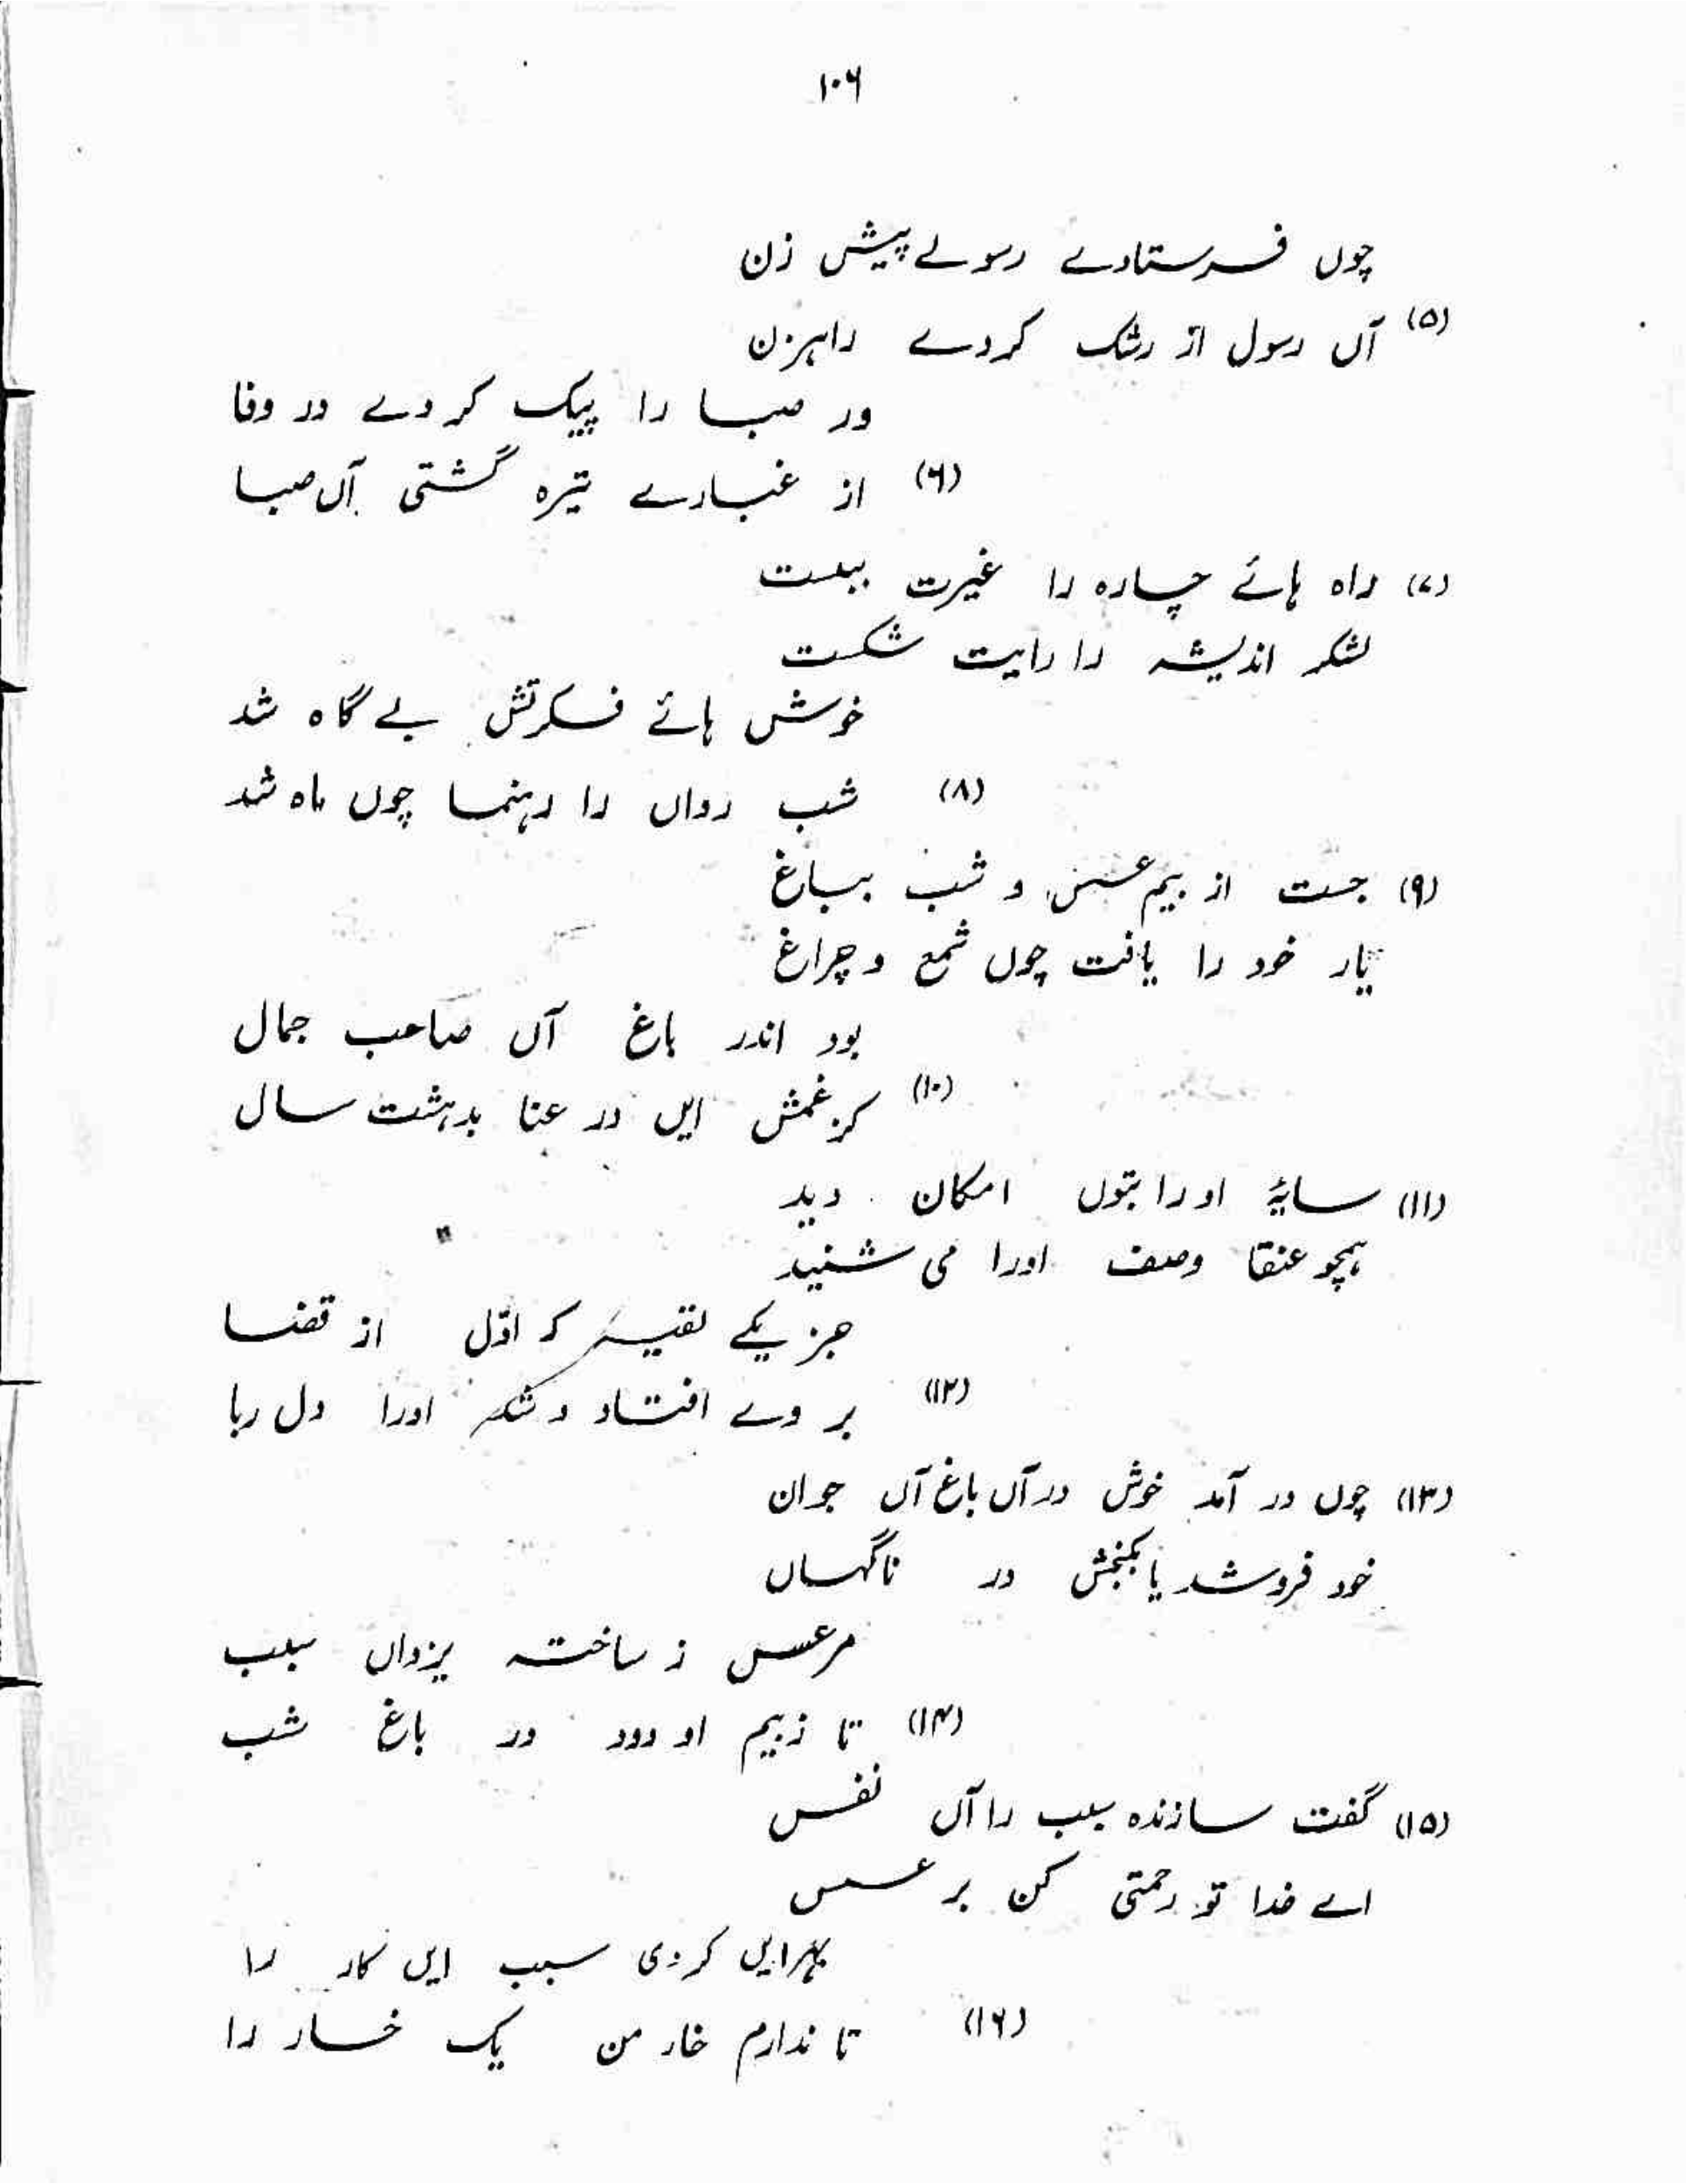 ۱۰۶
چوں فرستادے رسولے پیش زن
(۵) آں رسول از رشک کردے راہزن
ور صبا را پیک کردے در وفا
(۶) از غبارے تیرہ گشتی آں صبا
(۷) راہ ہائے چارہ را غیرت ببست
لشکر اندیشہ را رایت شکست
خوش ہائے فکرتش بے گاہ شد
(۸) شب رواں را رہنما چوں ماہ شد
(۹) جست از بیم عسس و شب بباغ
یار خود را یافت چوں شمع و چراغ
بود اندر باغ آں صاحب جمال
(۱۰) کز غمش ایں در عنا بدہشت سال
(۱۱) سایۂ او را بتوں امکان دید
ہمچو عنقا وصف اورا می شنید
جز یکے لقیہ کہ اوّل از قضا
(۱۲) بر وے افتاد و شد اورا دل ربا
(۱۳) چوں در آمد خوش در آں باغ آں جوان
خود فروشد پا بگنجش در ناگہاں
مرعسس ز ساختہ یزداں سبب
(۱۴) تا زبیم او دود در باغ شب
(۱۵) گفت سازندہ سبب را آں نفس
اے خدا تو رحمتی کن بر عسس
بہرایں کردی سبب ایں کار را
(۱۶) تا ندارم خار من یک خار را